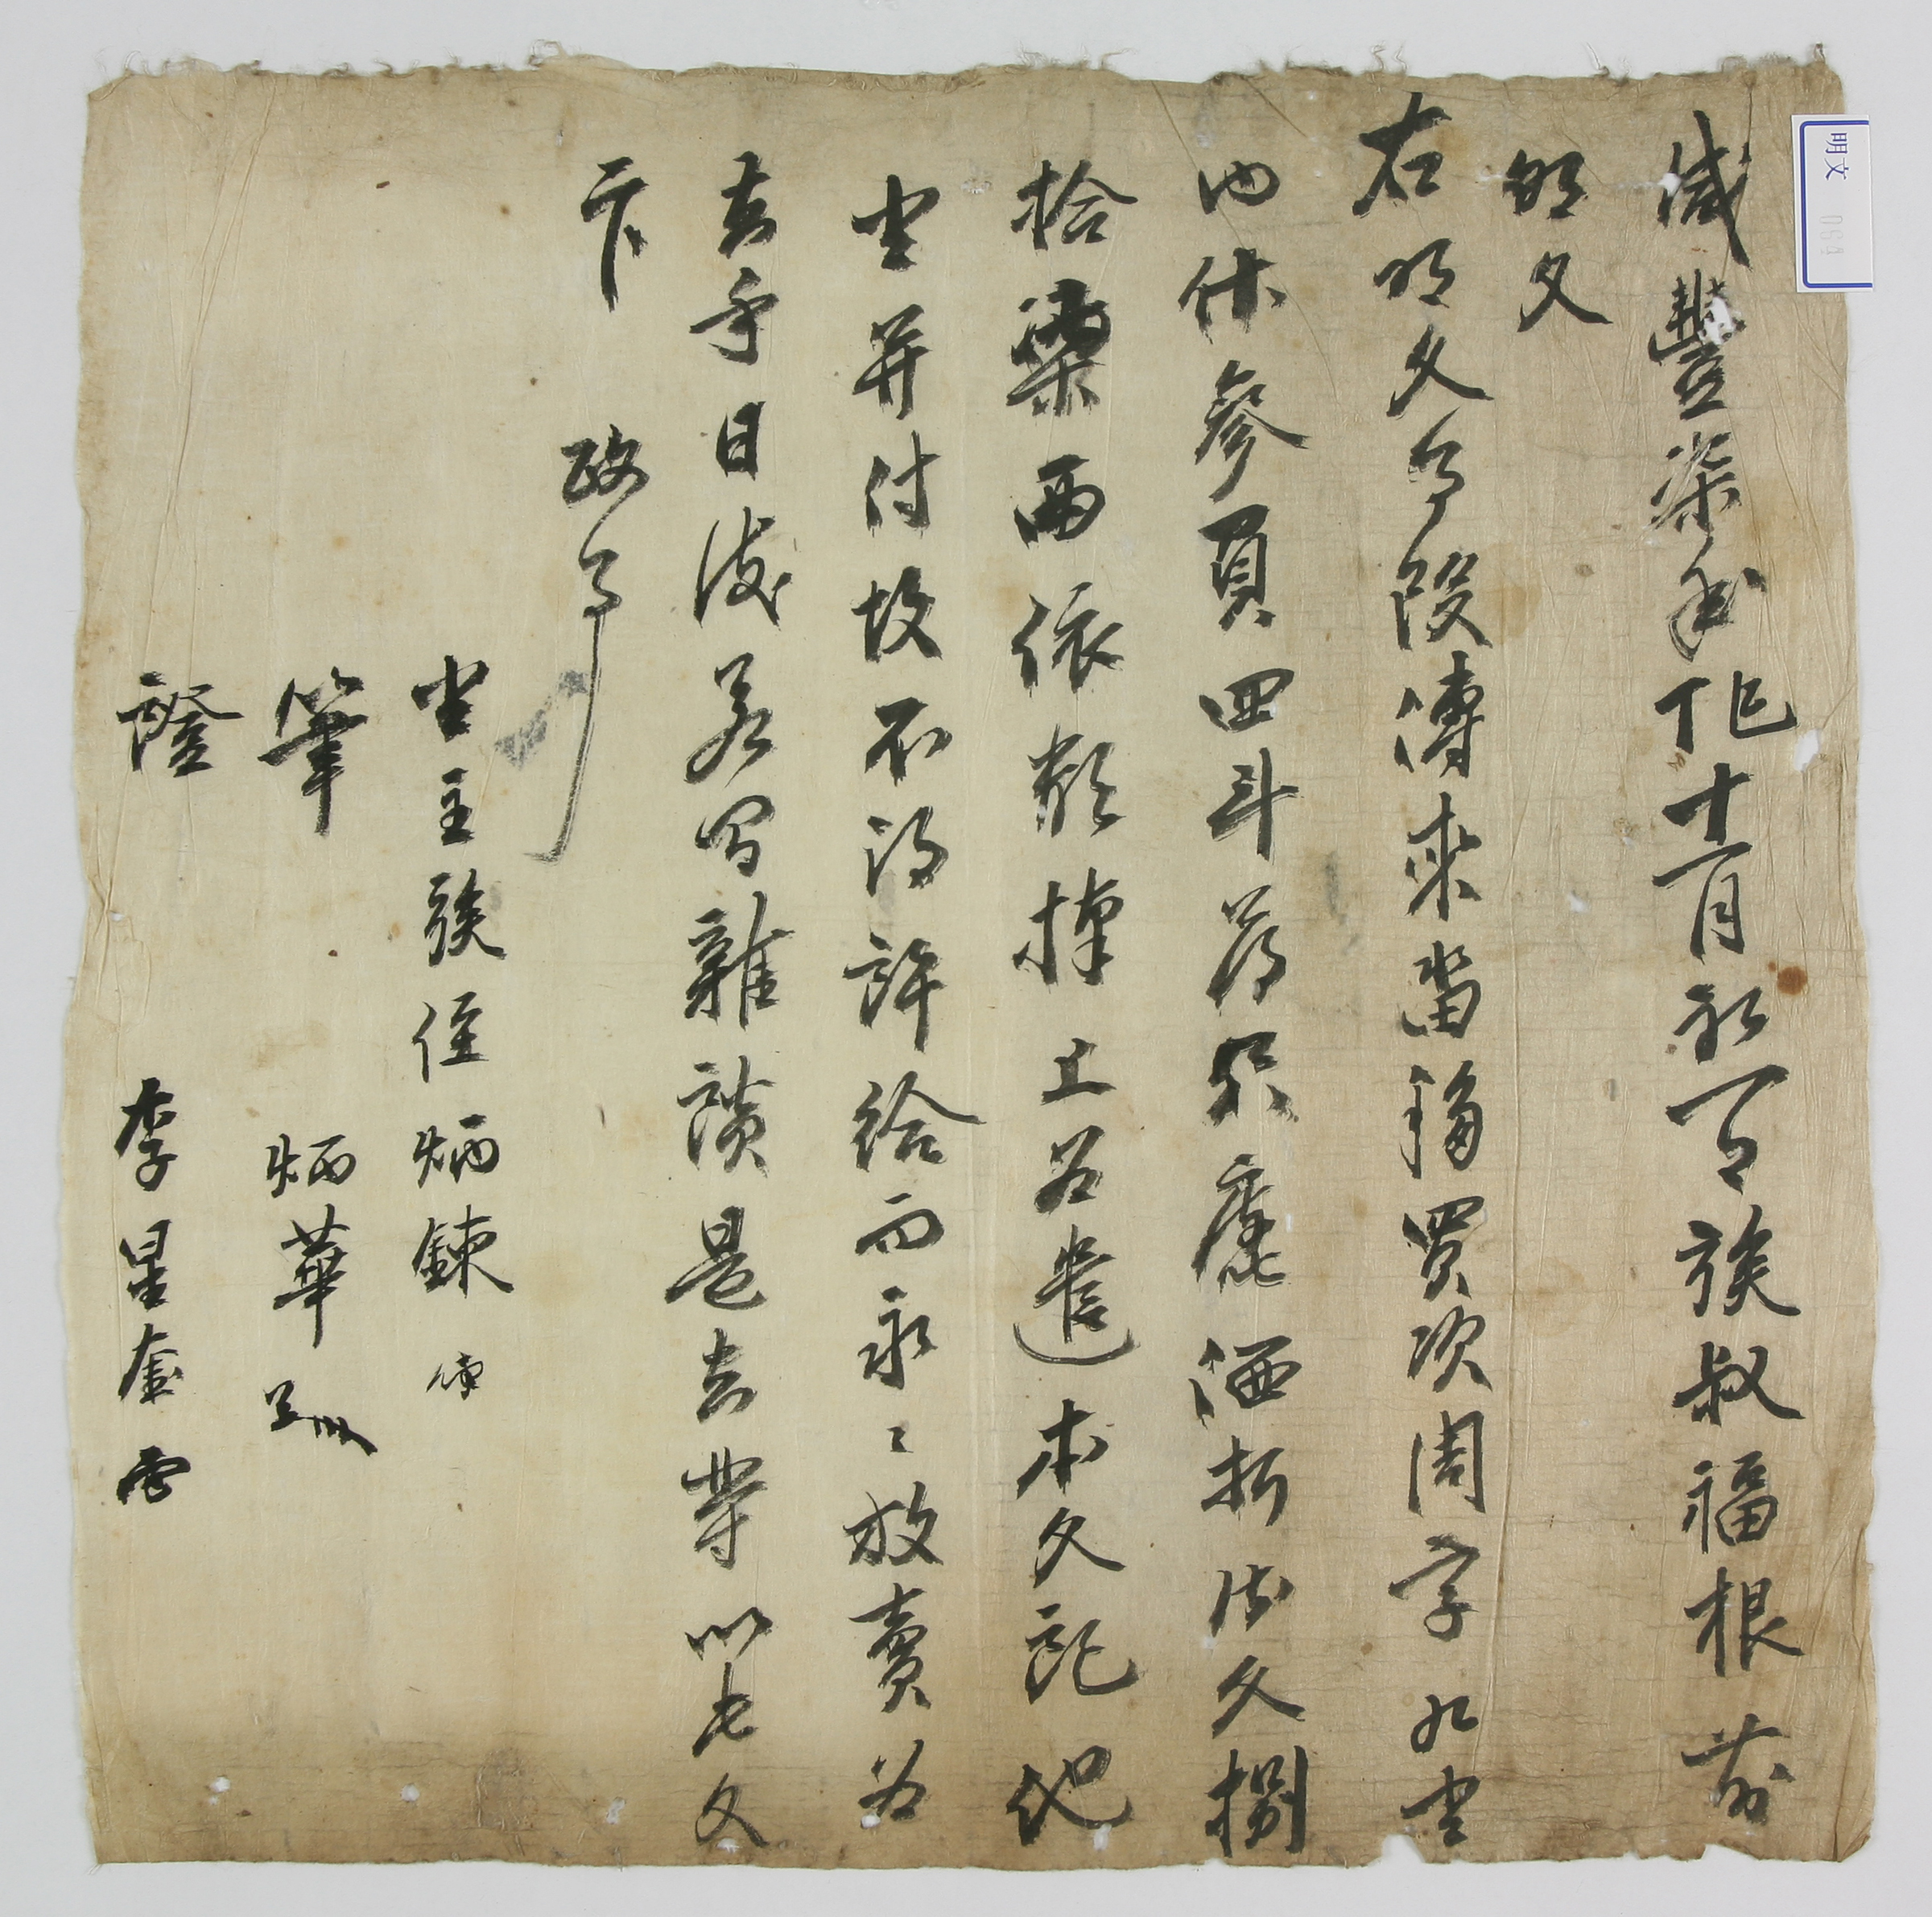 咸豐柒年丁巳十一月初一日族叔福根前
明文
右明文事段傳來畓移買次周字九畓
內休參負四斗落只庫乙價折錢文捌
拾柒兩依數捧上是遣本文記他
畓幷付故不得許給而永永放賣爲
去乎日後若有雜談是去等以此文
卞政事
畓主族侄炳鍊
筆 炳華
證 李星奎
明文 064